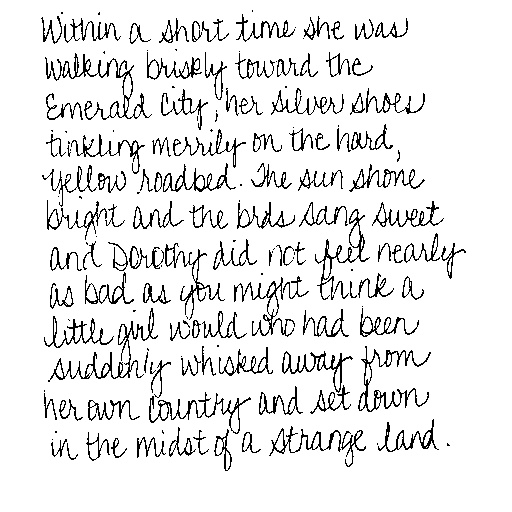 Within a short time she was
walking briskly toward the
Emerald City, her silver shoes
tinkling merrily on the hard,
yellow roadbed. The sun shone
bright and the brds sang sweet
and Dorothy did not feel nearly
as bad as you might think a
little girl would who had been
suddenly whisked away from
her own country and set down
in the midst of a strange land.